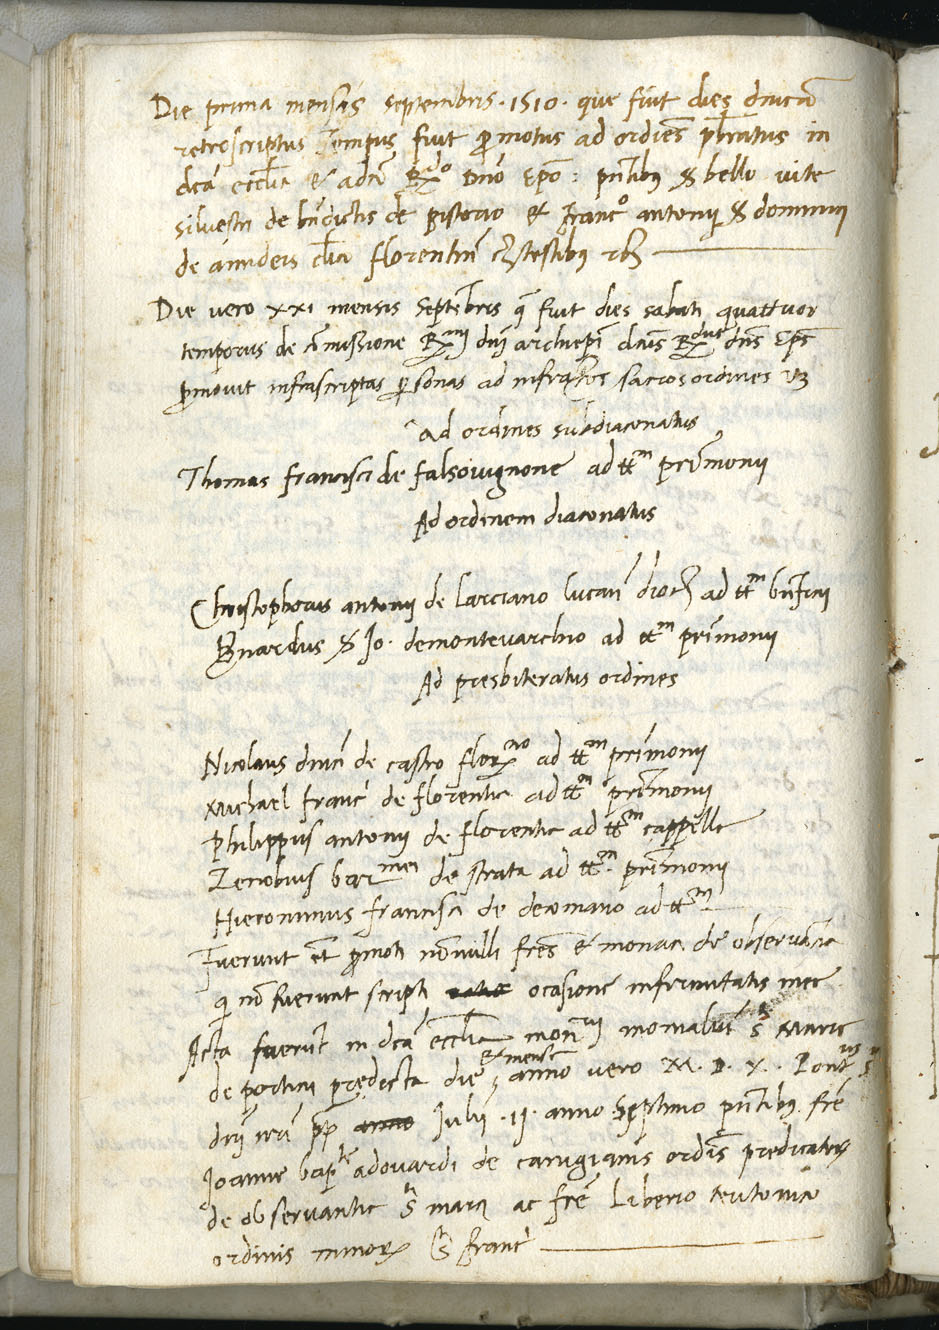 Die prima mensis septembris · 1510 · que fuit dies dnica
retroscriptus fuit pmotus ad ordies pbratus in
dca ecclia & adco Rdo Dno Epo : pntibus bello vite
silvestri de bndictis de pistorio & Franco antonij dominici
de clico florentin testibus rbz
Die vero xxi mensis septebris q fuit dies sabati quattuor
temporus de comissione Rmi dni archiepi dcus Rdus dns Eps
pmovit infrascriptas psonas ad infraptos sacros ordines vz
Ad ordines subdiaconatus
Thomas francisci de falsovignone ad ttm primonij
Ad ordinem diaconatus
Christophorus antonij de larciano lucan dioc ad ttm bnficij
Bnardus Jo· demontevarchio ad ttm primonij
Ad presbiteratus ordines
Nicolaus dnici de castro florno ad ttm primonij
Michael franci de florentia ad ttm primonij
Philippus antonij de florentia ad ttm cappelle
Zenobius barmei de strata ad ttm primonij
Hieronimus francisci de decomano ad ttm
Fuerunt et pmoti nonnulli fres & monaci de observatia
qi no fuerunt scripti ocasione infirmitatis mee
Acta fuerut in dca ecclia monrij monialiu S Marie
de portico predicta die & mense anno vero M. D. X. Pontus
dni nri pp Julii · II · anno septimo pntibus fre
Joanne bapta adovardi de canigianis ordis predicator
de observantia S marci ac fre Liberio teutonico
ordinis minor S Franci